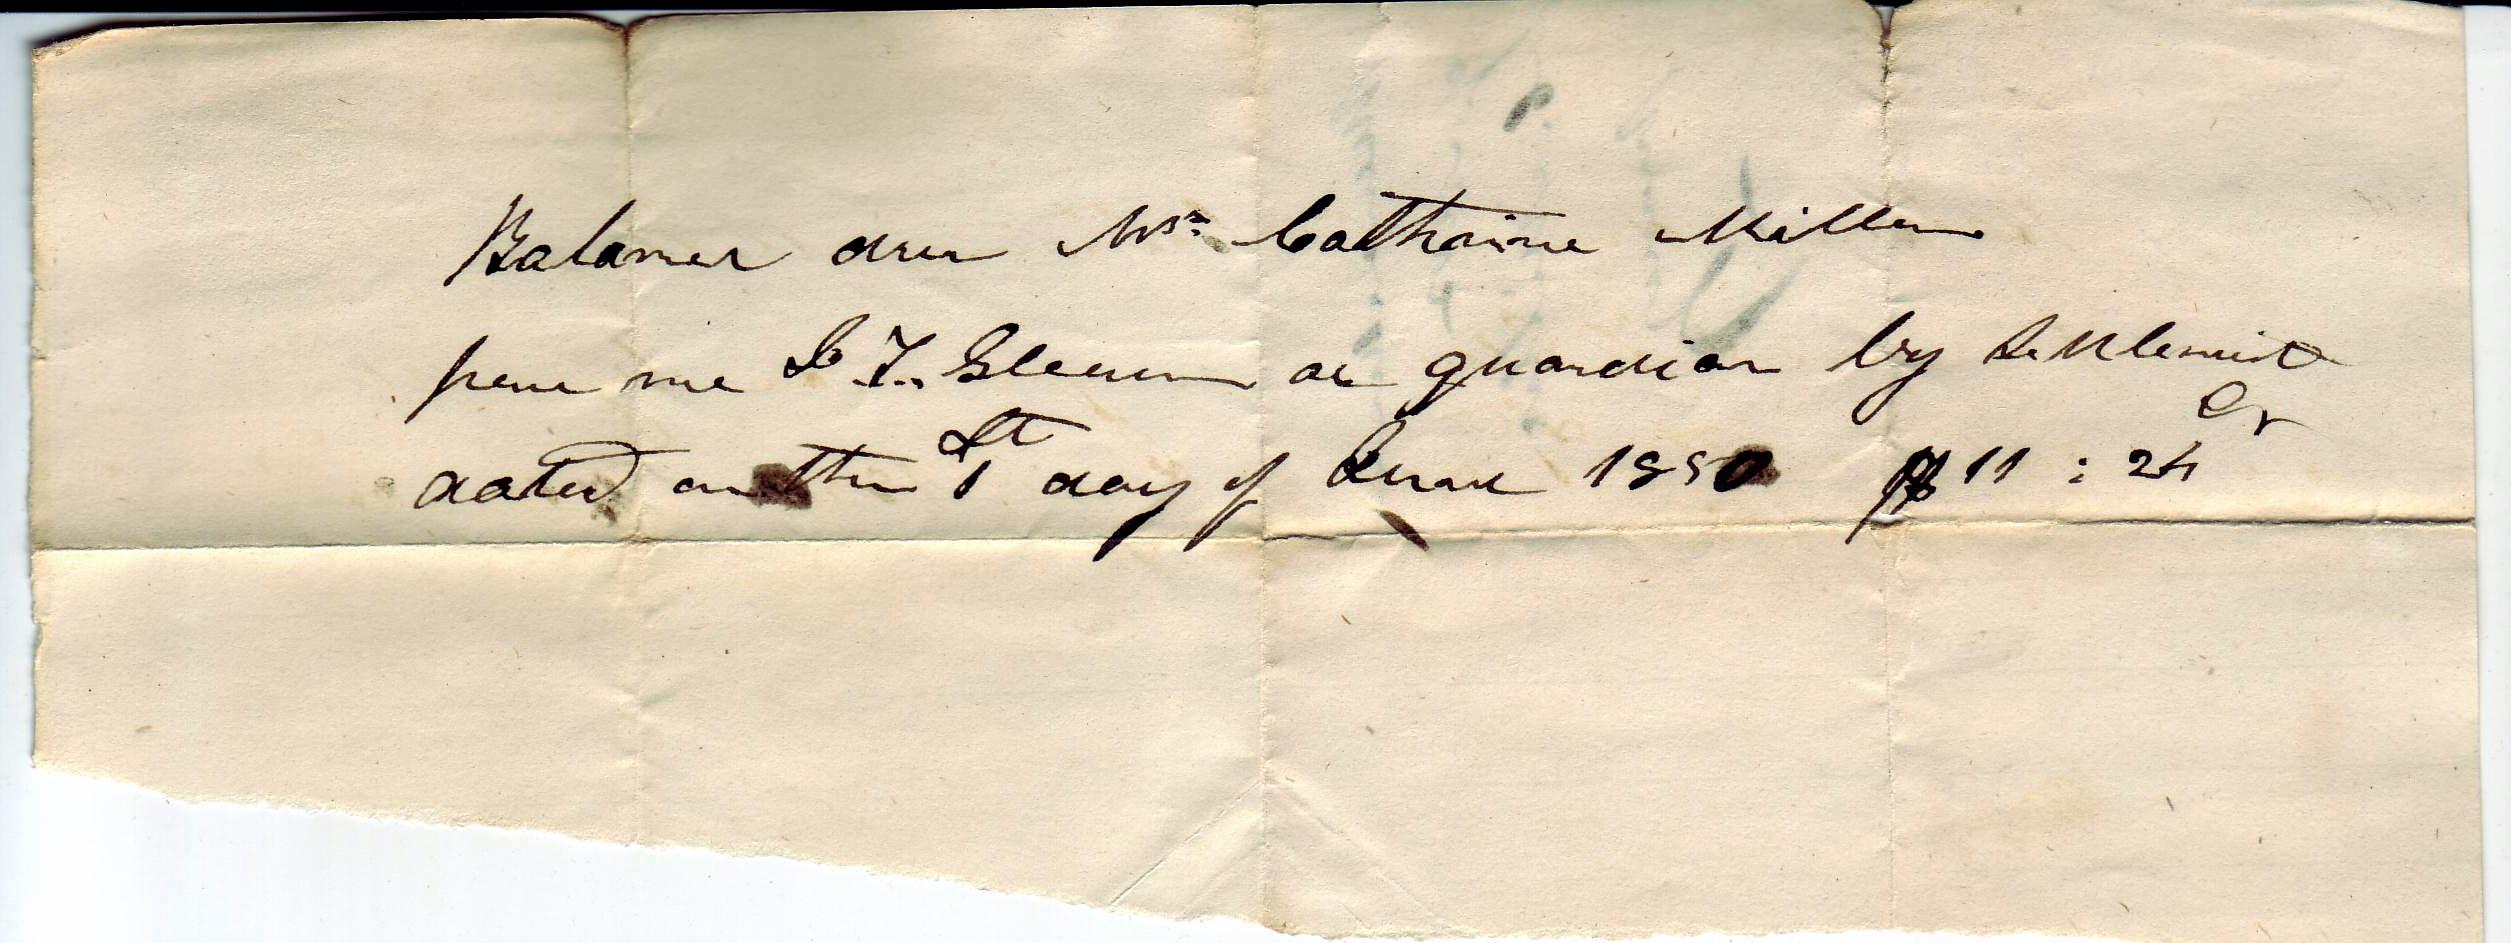 Balance due Mrs. Catharine Miller
from me L. F. Gleen as guardian by Settlement
dated on the 1st day of June 1850 $11 : 24 cr